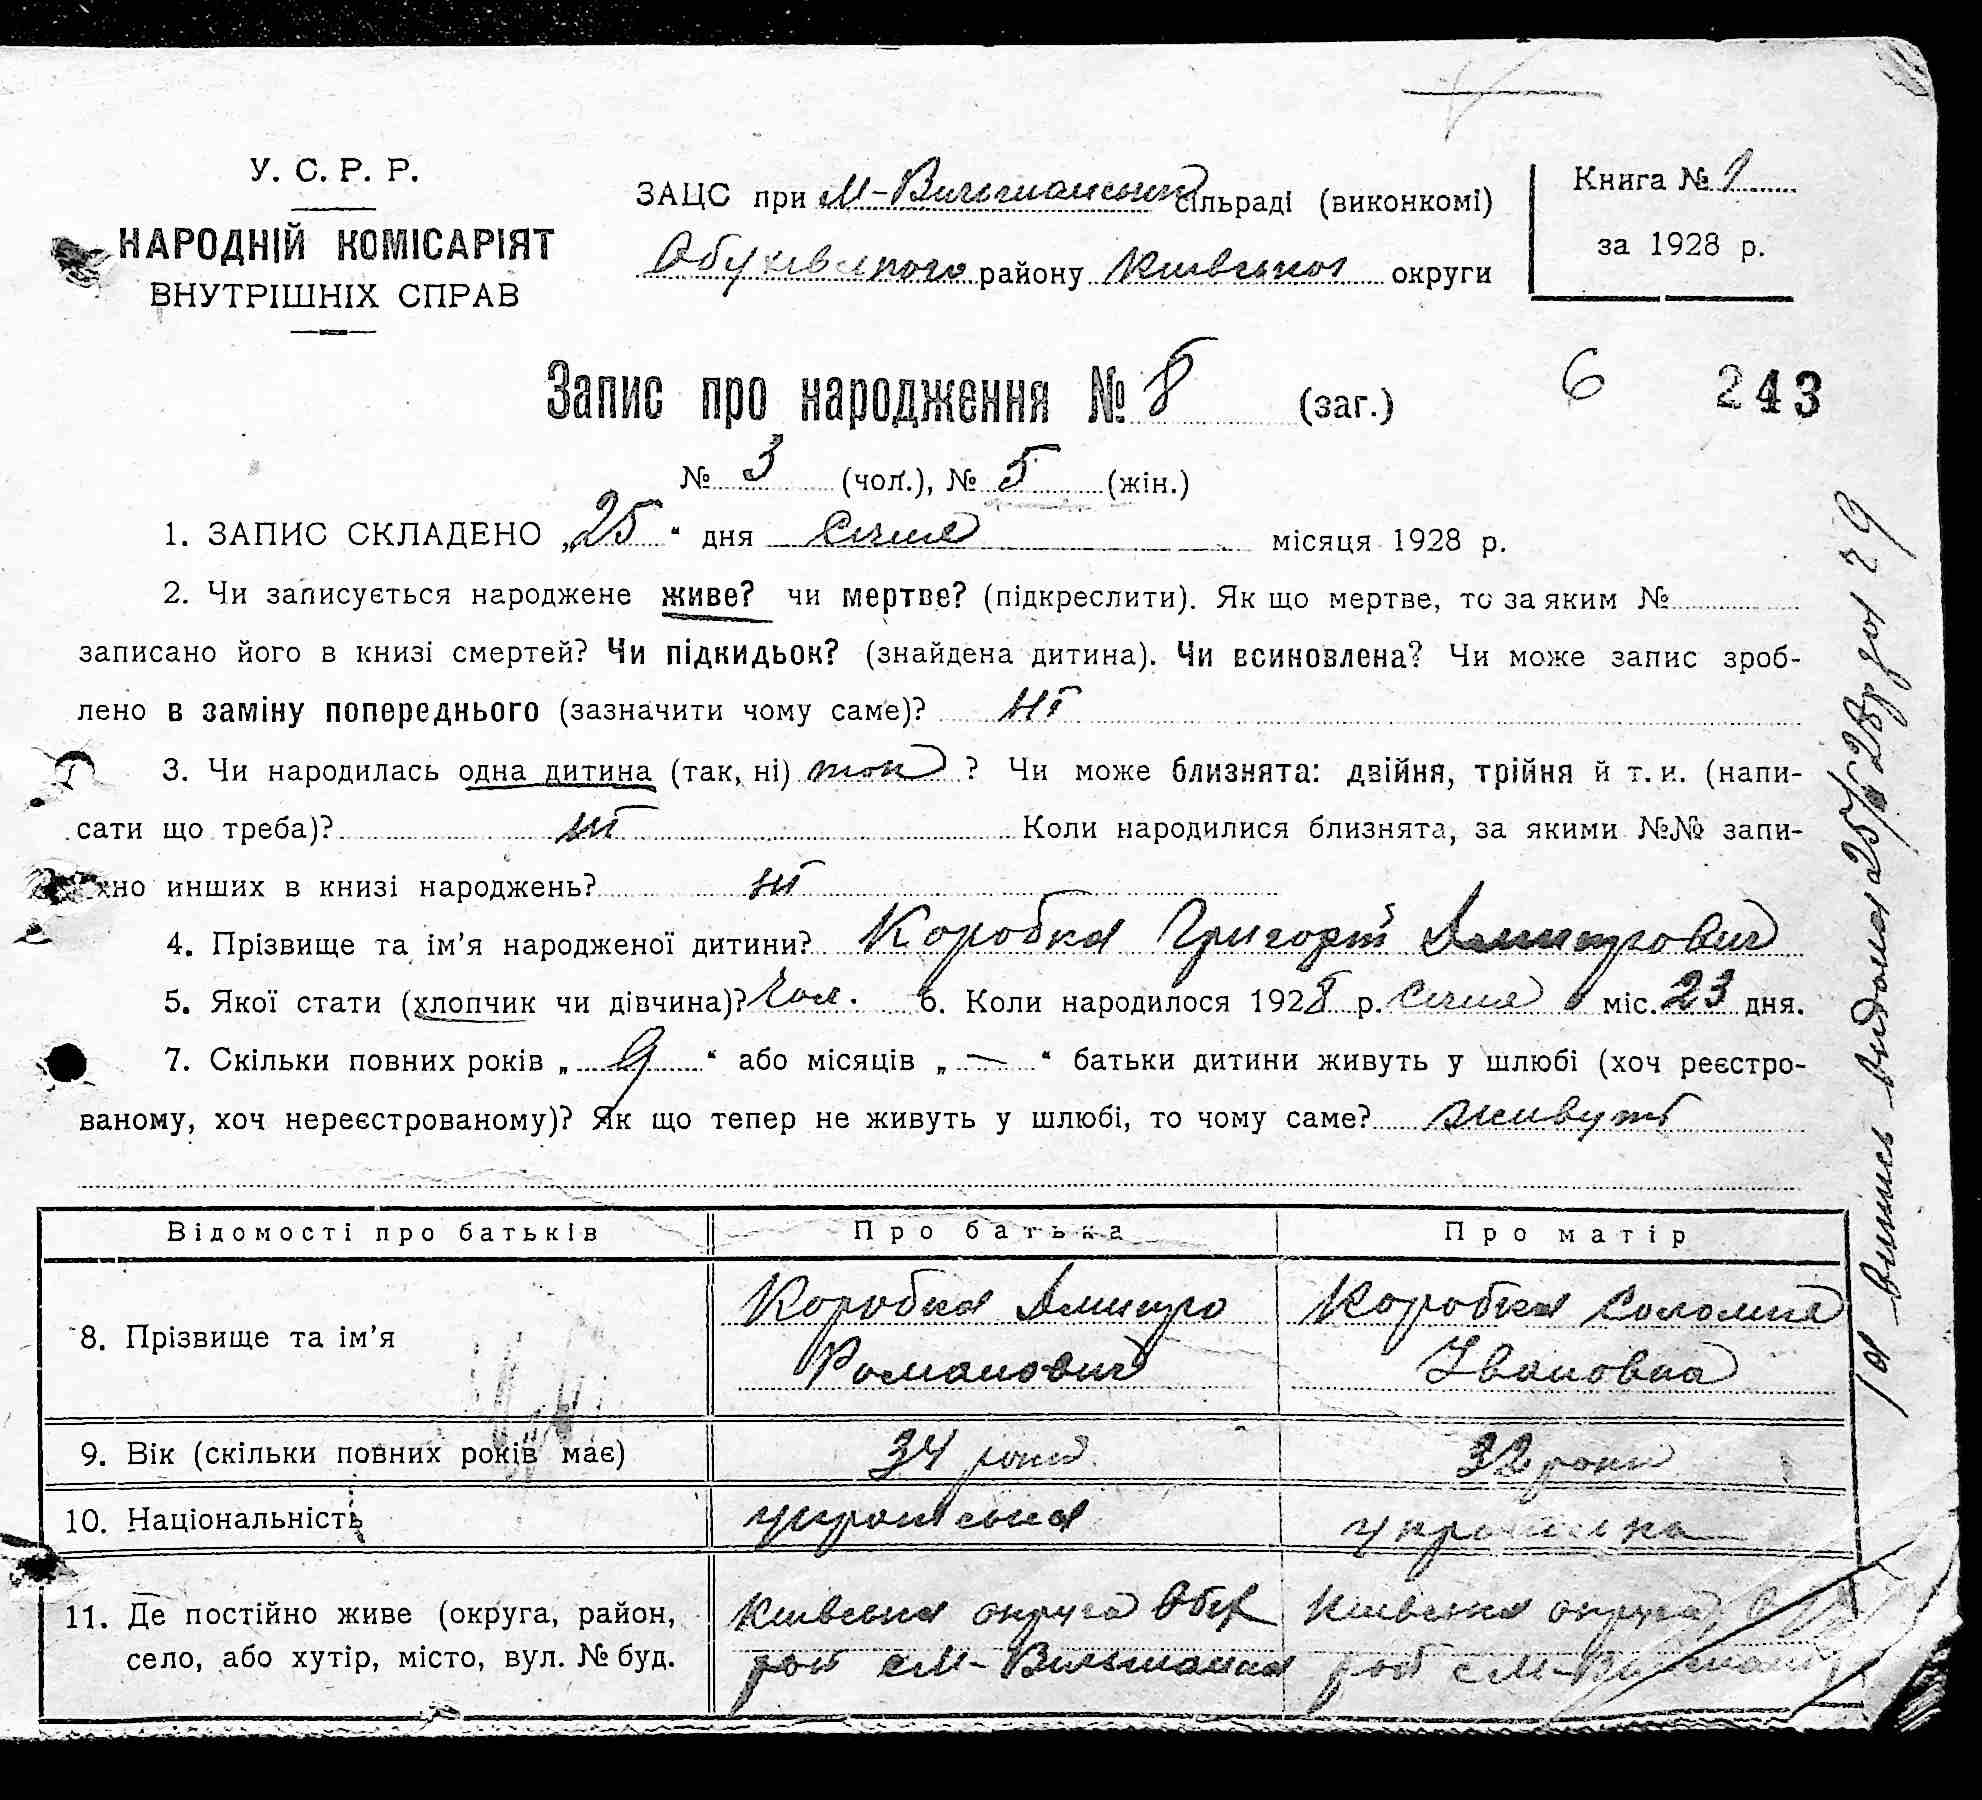 У. С. Р. Р.
НАРОДНІЙ КОМІСАРІЯТ
ВНУТРІШНІХ СПРАВ
ЗАЦС при М-Вильшанській сільраді (виконкомі)
Обухівського району Київської округи
Книга № 1
за 1928 р.
Запис про народження № 8 (заг.)
6 243
№ 3 (чол.), № 5 (жін.)
1. ЗАПИС СКЛАДЕНО „25“ дня Січня місяця 1928 р.
2. Чи записується народжене живе? чи мертве? (підкреслити). Як що мертве, то за яким №
записано його в книзі смертей? Чи підкидьок? (знайдена дитина). Чи всиновлена? Чи може запис зроб-
лено в заміну попереднього (зазначити чому саме)? ні
3. Чи народилась одна дитина (так, ні) так ? Чи може близнята: двійня, трійня й т. и. (напи-
сати що треба)? ні Коли народилися близнята, за якими №№ запи-
но инших в книзі народжень? ні
4. Прізвище та ім’я народженої дитини? Коробка Григорій Дмитрович
5. Якої стати (хлопчик чи дівчина)? Чол. 6. Коли народилося 1928 р. Січня міс. 23 дня.
7. Скільки повних років „ 9 “ або місяців „ — “ батьки дитини живуть у шлюбі (хоч реєстро-
ваному, хоч нереєстрованому)? Як що тепер не живуть у шлюбі, то чому саме? живуть
Відомості про батьків Про батька Про матір
8. Прізвище та ім’я
Коробка Дмитро
Романович
Коробка Соломія
Івановна
9. Вік (скільки повних років має) 34 роки 32 роки
10. Національність українська українка
11. Де постійно живе (округа, район,
село, або хутір, місто, вул. № буд.
Київська округа Обух
рай с М-Вильшанка
Київська округа,
рай с М-Вильшанка
Випись видана 25/I 28р